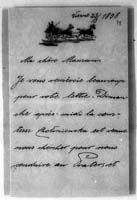 23/1898
Ma chère Maman
Je vous remercie beaucoup
pour votre lettre. Diman-
che après-midi la com-
tesse est venue
nous chercher pour nous
conduire au Prater